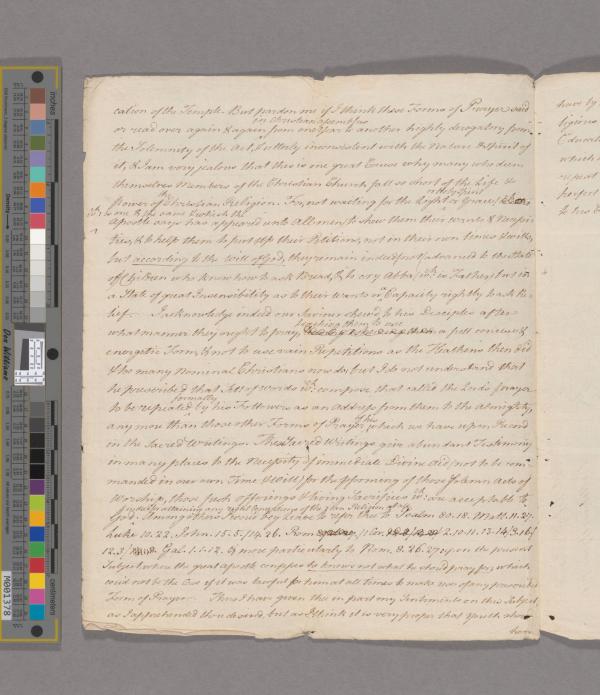 cation of the Temple. But pardon me if I think these Forms of Prayer said
in Christian assemblies
or read over again & again from one year to another highly derogatory from
the Solemnity of the Act, & utterly inconsistent with the Nature & Spirit of
it, & I am very jealous that this is one great Cause why many who deem
themselves Members of the Christian Church fall so short of the Life &
flower of the Christian Religion. For, not waiting for the Light or Grace
is one & the same & which the
Apostle says has appeared unto all men, to shew them their wants & Necessi
ties, & to help them to put up their Petitions, not in their own times & wills,
but according to the Will of God, they remain indeed not advanced to the State
of Children who know how to ask Bread, & to cry Abba, wch. is Father, but in
a State of great Insensibility as to their Wants or Capacity rightly to ask Re
lief. I acknowledge indeed our Saviour shew'd to his Disciples after
teaching them to use
what manner they ought to pray, a full concise &
energetic Form, & not to use vain Repetitions as the Heathens then did
& too many Nominal Christians now do; but I do not understand that
he prescribed that Sett of words wch. compose that called the Lords Prayer
formally
to be repeated by his Followers as an address from them to the Almighty,
any more than those other Forms of Prayer which we have upon Record
in the Sacred Writings. The Sacred Writings give abundant Testimony
in many places to the Necessity of immediate Divine Aid (not to be com
manded in our own Time & Will) for the performing of those Solemn Acts of
Worship, those such offerings & living Sacrifices wch. are acceptable to
God. Amongst these I now beg leave to refer thee to Psalm 80.18. Math. 11.27.
Luke 10.22. John. 15.5./14.26. 1 Cor. 2.10.11.13.14/3.16/
12.3/ Gal. 1.1.12. & more particularly to Rom. 8.26.27 of on the present
Subject where the great Apostle confesses to know not what he should pray for, which
could not be the Case if it was lawful for him at all times to make use of any prescribed
Form of Prayer. Thus I have given thee in part my Sentiments on this Subject,
as I apprehended thou desired, but as I think it is very proper that Youth should
have
have by
ligious
Educat
which
repeat
perfect
to two
inches
centimeters
Density
Don Williams
M001378